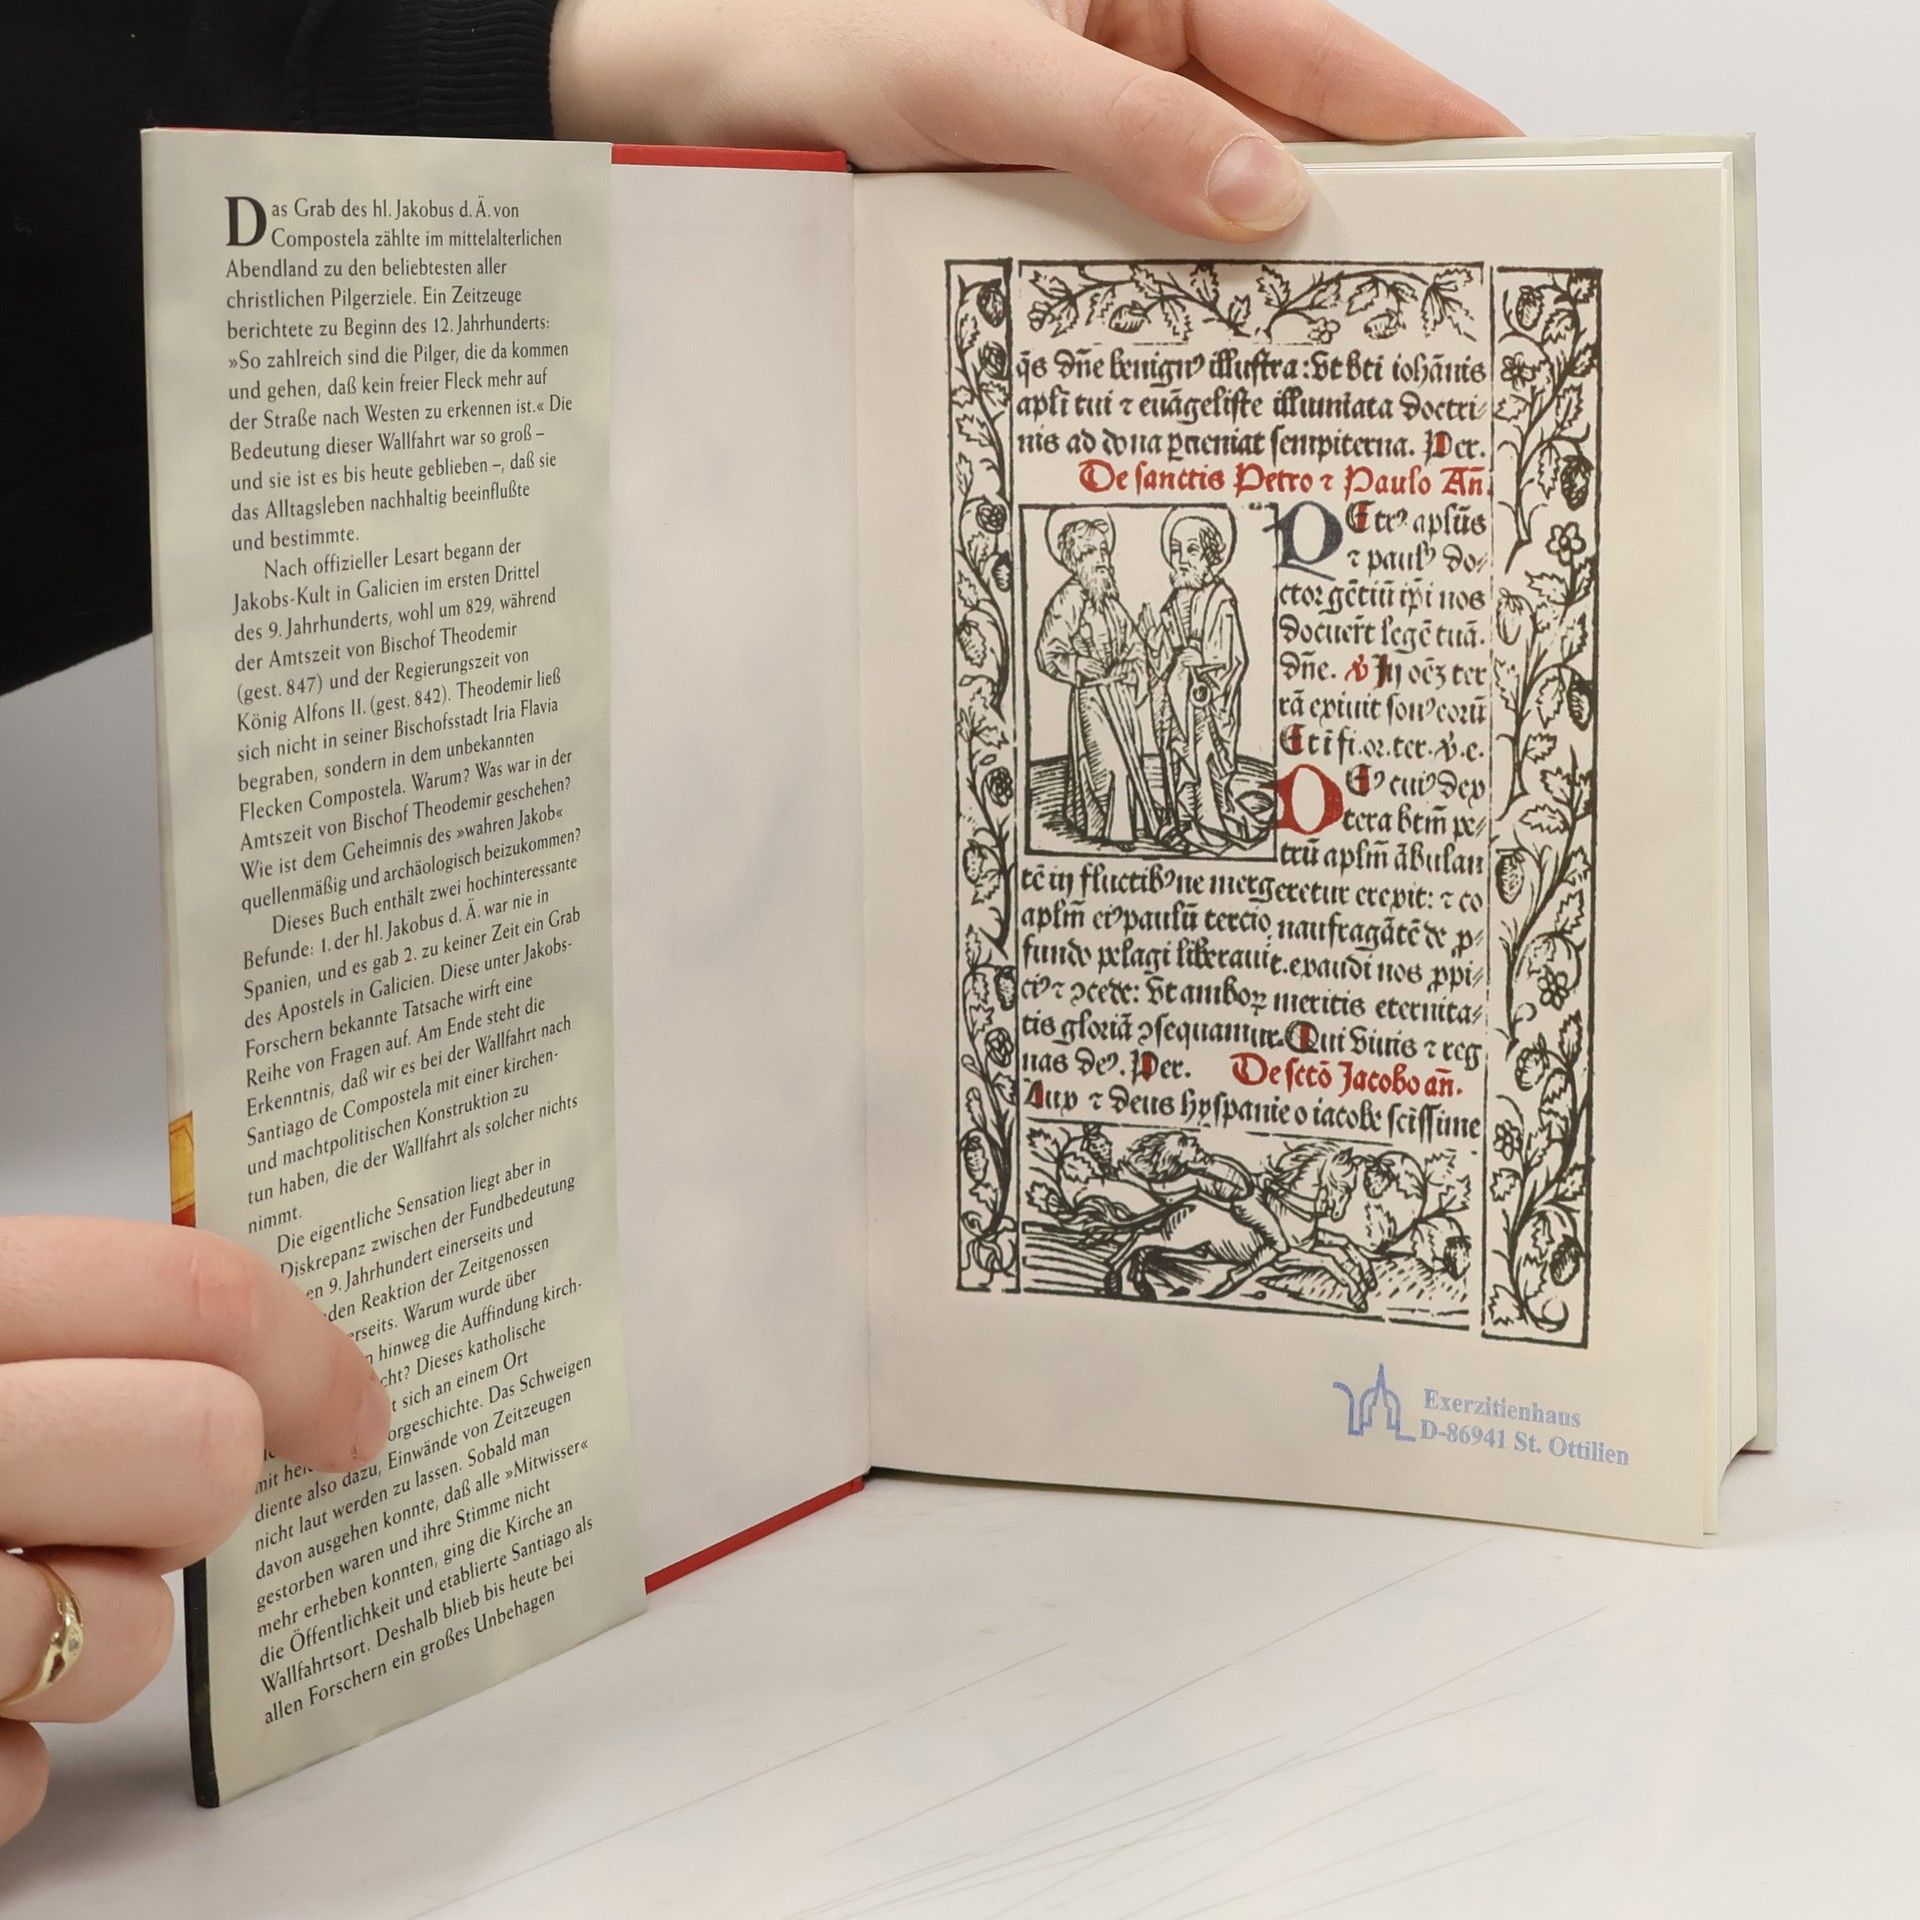 Das Grab des hl. Jakobus d. Ä. von
Compostela zählte im mittelalterlichen
Abendland zu den beliebtesten aller
christlichen Pilgerziele. Ein Zeitzeuge
berichtete zu Beginn des 12. Jahrhunderts:
»So zahlreich sind die Pilger, die da kommen
und gehen, daß kein freier Fleck mehr auf
der Straße nach Westen zu erkennen ist.« Die
Bedeutung dieser Wallfahrt war so groß –
und sie ist es bis heute geblieben –, daß sie
das Alltagsleben nachhaltig beeinflußte
und bestimmte.
Nach offizieller Lesart begann der
Jakobs-Kult in Galicien im ersten Drittel
des 9. Jahrhunderts, wohl um 829, während
der Amtszeit von Bischof Theodemir
(gest. 847) und der Regierungszeit von
König Alfons II. (gest. 842). Theodemir ließ
sich nicht in seiner Bischofsstadt Iria Flavia
begraben, sondern in dem unbekannten
Flecken Compostela. Warum? Was war in der
Amtszeit von Bischof Theodemir geschehen?
Wie ist dem Geheimnis des »wahren Jakob«
quellenmäßig und archäologisch beizukommen?
Dieses Buch enthält zwei hochinteressante
Befunde: 1. der hl. Jakobus d. Ä. war nie in
Spanien, und es gab 2. zu keiner Zeit ein Grab
des Apostels in Galicien. Diese unter Jakobs-
Forschern bekannte Tatsache wirft eine
Reihe von Fragen auf. Am Ende steht die
Erkenntnis, daß wir es bei der Wallfahrt nach
Santiago de Compostela mit einer kirchen-
und machtpolitischen Konstruktion zu
tun haben, die der Wallfahrt als solcher nichts
nimmt.
Die eigentliche Sensation liegt aber in
Diskrepanz zwischen der Fundbedeutung
9. Jahrhundert einerseits und
den Reaktion der Zeitgenossen
Warum wurde über
hinweg die Auffindung kirch-
Dieses katholische
sich an einem Ort
Das Schweigen
mit
diente also dazu, Einwände von Zeitzeugen
nicht laut werden zu lassen. Sobald man
davon ausgehen konnte, daß alle »Mitwisser«
gestorben waren und ihre Stimme nicht
mehr erheben konnten, ging die Kirche an
die Öffentlichkeit und etablierte Santiago als
Wallfahrtsort. Deshalb blieb bis heute bei
allen Forschern ein großes Unbehagen
q̃s dñe benignꝰ illustra: vt bti iohãnis
apl̃i tui ⁊ euãgeliste illumĩata doctri-
nis ad dona ꝑueniat sempiterna. Per.
De sanctis Petro ⁊ Paulo Añ.
PEtrꝰ apl̃us
⁊ paulꝰ do-
ctor gẽtiũ ip̃i nos
docuer̃t legẽ tuã.
dñe. ℣ In oẽꝫ ter
rã exiuit sonꝰ eorũ
Et ĩ fi. or. ter. ℣. e.
DEꝰ cuiꝰ dex
tera btm̃ pe-
trũ apl̃m ãbulan
tẽ in fluctibꝰ ne mergeretur erexit: ⁊ co
apl̃m eiꝰ paulũ tercio naufragãtẽ de ꝓ-
fundo pelagi liberauit. exaudi nos ꝓpi-
ciꝰ ⁊ ↄcede: vt amboꝝ meritis eternita-
tis gloriã ↄsequamur. Qui viuis ⁊ reg
nas deꝰ. Per. De sctõ Jacobo añ.
Lux ⁊ decus hyspanie o iacobe sc̃issime
Exerzitienhaus
D-86941 St. Ottilien